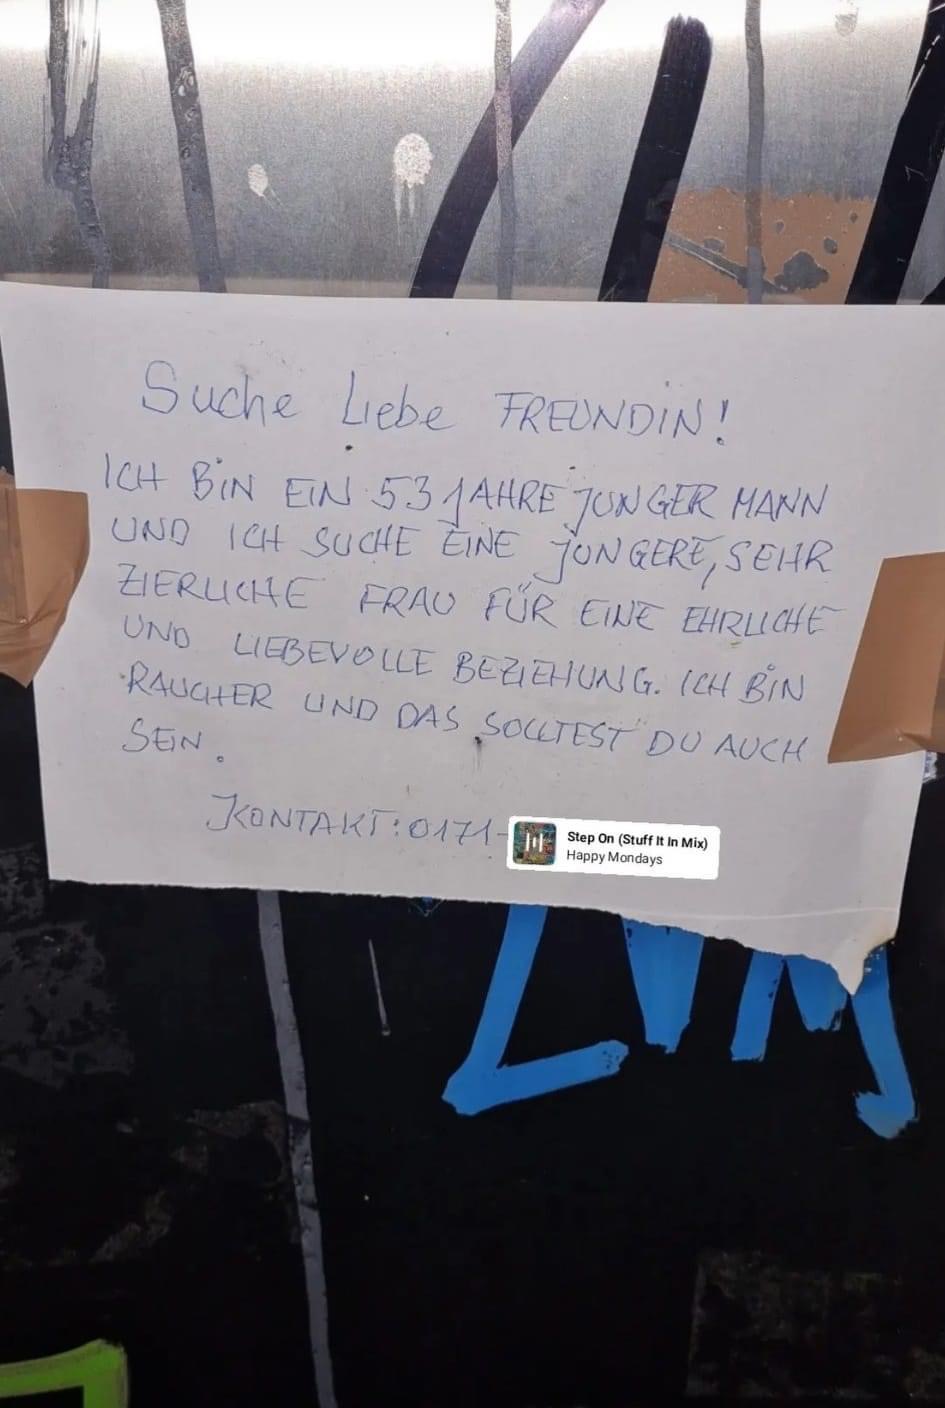 Suche Liebe FREUNDIN!
ICH BIN EIN 53 JAHRE JUNGER MANN
UND ICH SUCHE EINE JÜNGERE, SEHR
ZIERLICHE FRAU FÜR EINE EHRLICHE
UND LIEBEVOLLE BEZIEHUNG. ICH BIN
RAUCHER UND DAS SOLLTEST DU AUCH
SEIN.
KONTAKT: 0171-
Step On (Stuff It In Mix)
Happy Mondays